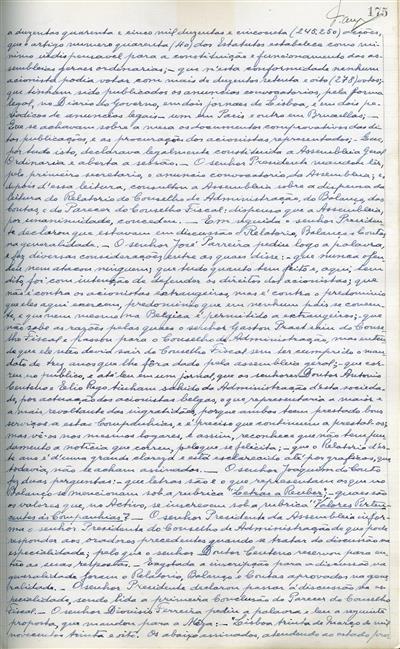 175
a duzentos quarenta e cinco mil duzentos e cincoenta (245.250) acções,
que o artigo numero quarenta (40) dos Estatutos estabelece como mi-
nimo indispensavel para a constituição e funcionamento das as-
sembleias geraes ordinarias; — que n'esta conformidade nenhum
acionista podia votar com mais de duzentos setenta e oito (278) votos;
que tinham sido publicados os anuncios convocatorios, pela forma
legal, no Diario do Governo, em dois jornaes de Lisboa, e em dois pe-
riodicos de anuncios legais — um em Paris e outro em Bruxellas; —
Que se achavam sobre a mesa os documentos comprovativos das di-
tas publicações, e as procurações dos acionistas representados; — Que,
por tudo isto, declarava legalmente constituida a Assembleia Geral
Ordinaria e aberta a sessão. — O senhor Presidente mandou lêr,
pelo primeiro secretario, o anuncio convocatorio da Assembleia; e,
depois d'essa leitura, consultou a Assembleia sobre a dispensa da
leitura do Relatorio do Conselho de Administração, do Balanço, das
Contas, e do Parecer do Conselho Fiscal; dispensa que a Assembleia,
por unanimidade, concedeu. — Em seguida o senhor Presiden-
te declarou que estavam em discussão o Relatorio, Balanço e Contas
na generalidade. — O senhor José Parreira pediu logo a palavra,
e fez diversas considerações, entre as quais disse: — que nunca ofen-
deu nem atacou ninguem; que tudo quanto tem feito e, aqui, tem
dito, foi com intenção de defender os direitos dos acionistas; que
não é contra os acionistas extrangeiros, mas é contra o predominio
que eles aqui exercem, predominio que em nenhum país se consen-
te, e que nem mesmo na Belgica é permitido a extrangeiros; — que
não sabe as razões pelas quaes o senhor Gaston Praet saiu do Conse-
lho Fiscal e passou para o Conselho de Administração, mas enten-
de que ele não devia sair do Conselho Fiscal sem ter cumprido o man-
dato de tres anos que lhe fôra dado pela assembleia geral; — que cor-
reu no publico, e até leu em um jornal, que os senhores Doutor Antonio
Centeno e Elio Rego tinham saido da Administração d'esta socieda-
de, por actuação dos acionistas belgas, o que representaria a maior e
a mais revoltante das ingratidões, porque ambos tem prestado bons
serviços a estas Companhias, e é preciso que continuem a prestal-os;
mas vê-os nos mesmos logares, e assim, reconhece que não tem fun-
damento a noticia que correu, pelo que se felicita; — que o Relatorio d'es-
te ano é d'uma grande clareza, e está esclarecido até por graficos, que,
todavia, não lhe achem assinados. — O senhor Joaquim do Couto
fez duas perguntas: — que letras são e o que representam as que no
Balanço se mencionam sob a rubrica "Letras a Receber"; — quaes são
os valores que, no Activo, se inscrevem sob a rubrica "Valores Perten-
centes às Companhias"? — O senhor Presidente da Assembleia infor-
ma o senhor Presidente do Conselho de Administração de que pode
responder aos oradores precedentes quando se tratar da discussão na
especialidade; pelo que o senhor Doutor Centeno reservou para en-
tão as suas respostas. — Esgotada a inscripção para a discussão na
generalidade foram o Relatorio, Balanço e Contas aprovados na gene-
ralidade. — O senhor Presidente declarou passar á discussão da es-
pecialidade, sendo lida a primeira Conclusão do Parecer do Conselho
Fiscal. — O senhor Dionisio Ferreira pediu a palavra, e leu a seguinte
proposta, que mandou para a Mesa: — "Lisboa, trinta de Março de mil
novecentos trinta e oito. Os abaixo assinados, atendendo ao estado pros-